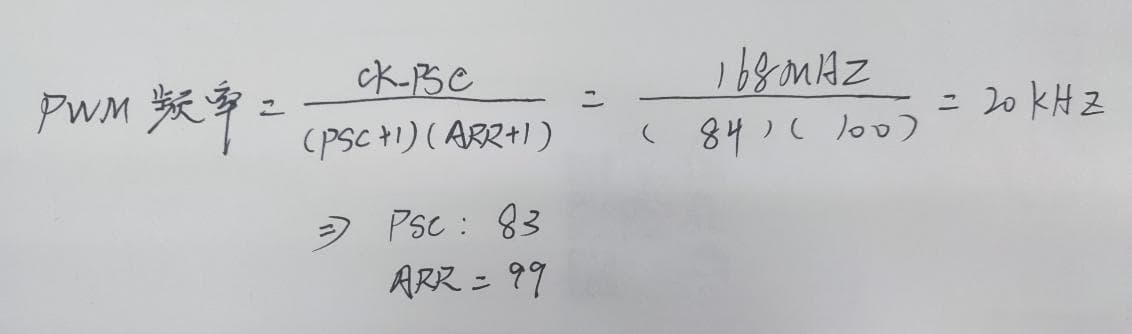 PWM 频率 = CK_PSC / (PSC+1)(ARR+1) = 168MHZ / (84)(100) = 20KHZ
⇒ PSC: 83
ARR = 99